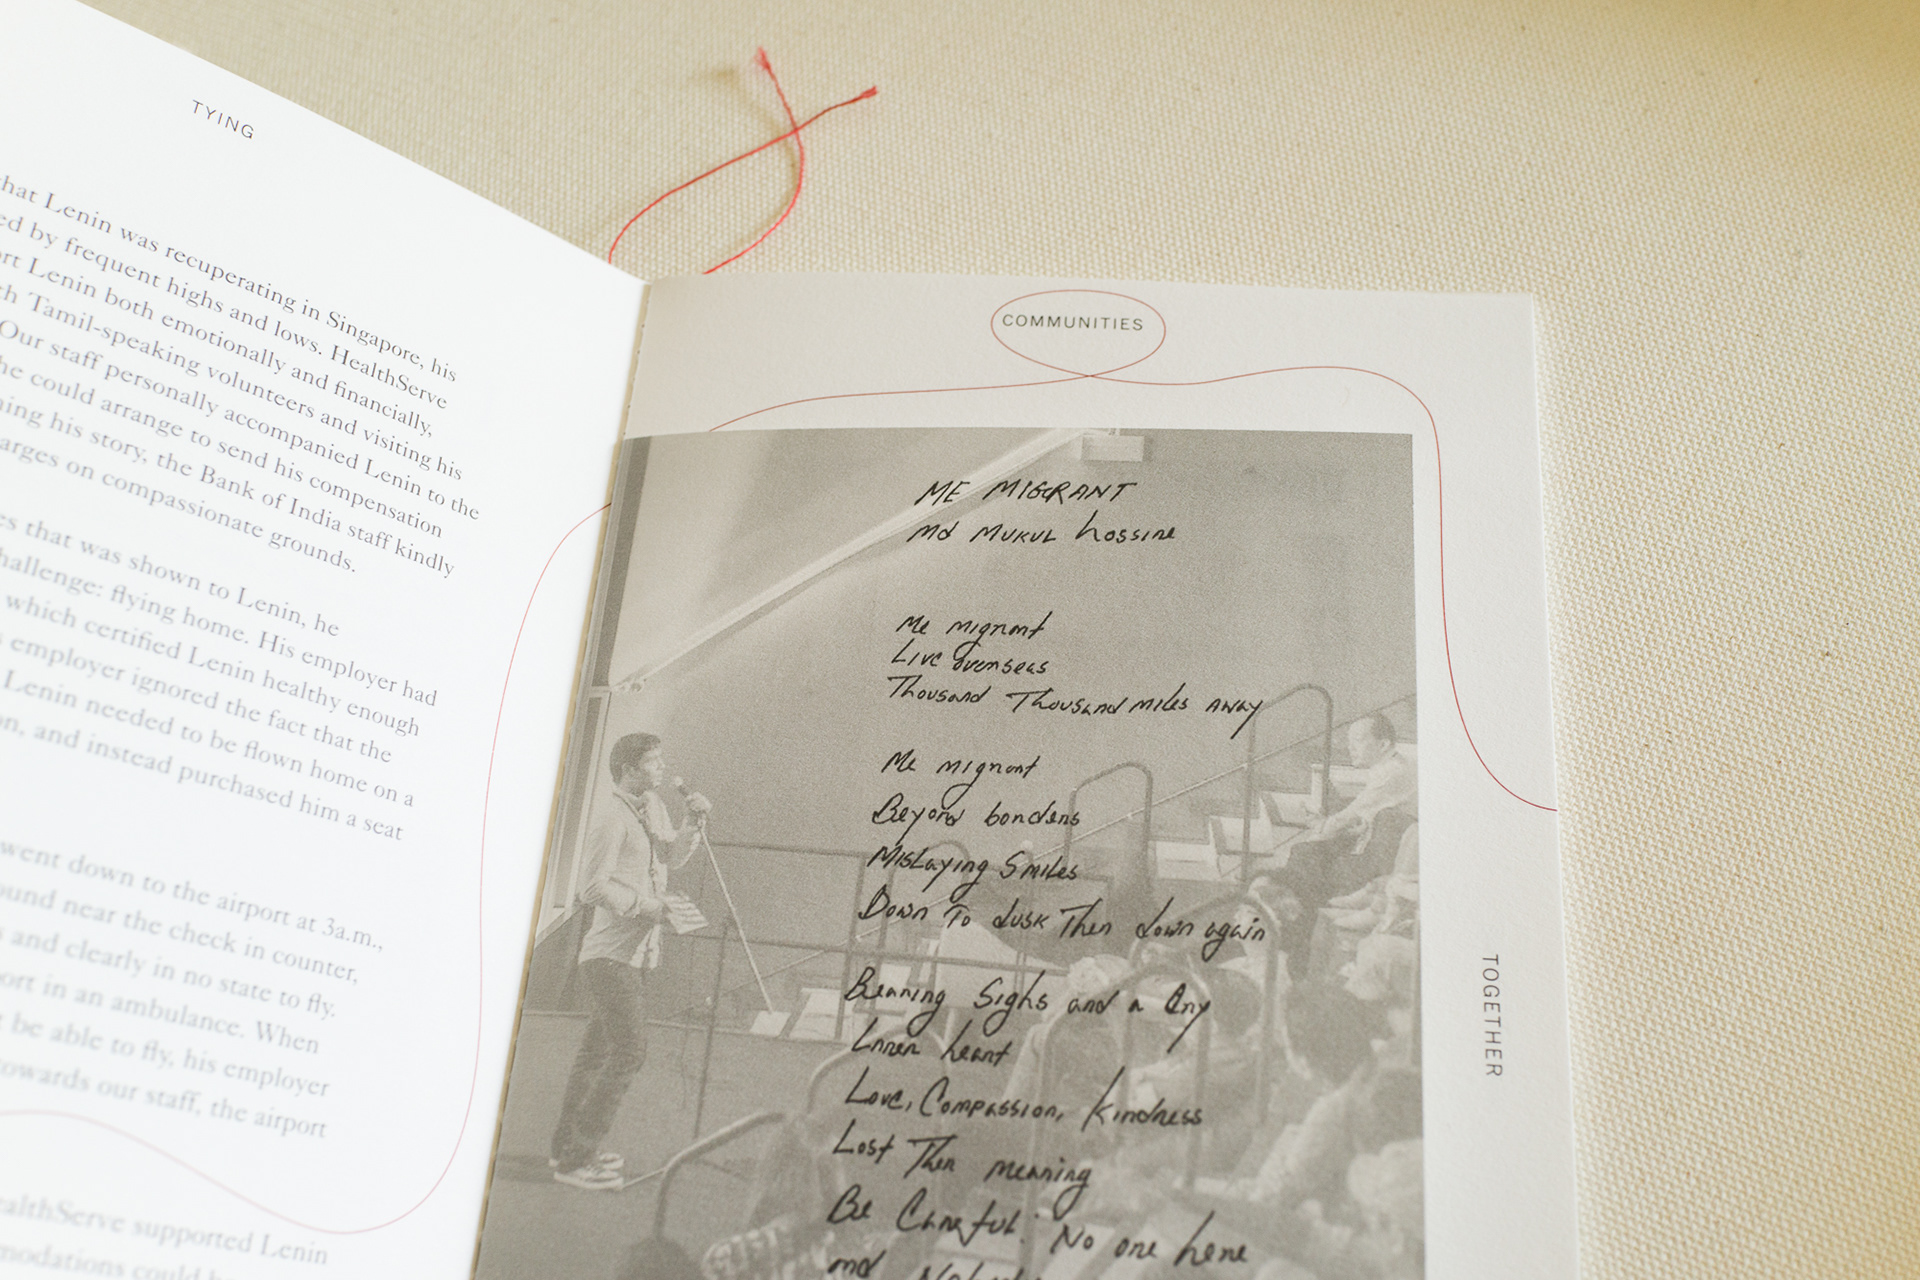 TYING
hat Lenin was recuperating in Singapore, his
ed by frequent highs and lows. HealthServe
rt Lenin both emotionally and financially,
h Tamil-speaking volunteers and visiting his
Our staff personally accompanied Lenin to the
he could arrange to send his compensation
ning his story, the Bank of India staff kindly
arges on compassionate grounds.
es that was shown to Lenin, he
hallenge: flying home. His employer had
which certified Lenin healthy enough
s employer ignored the fact that the
Lenin needed to be flown home on a
on, and instead purchased him a seat
went down to the airport at 3a.m.,
ound near the check in counter,
s and clearly in no state to fly.
ort in an ambulance. When
t be able to fly, his employer
towards our staff, the airport
ealthServe supported Lenin
modations could
COMMUNITIES
ME MIGRANT
Md MUKUL hossine
Me migrant
Live overseas
Thousand Thousand miles away
Me migrant
Beyond borders
Mislaying Smiles
Down To dusk Then down again
Bearing Sighs and a Cry
Inner heart
Love, Compassion, Kindness
Lost Their meaning
Be Careful: No one here
and
TOGETHER